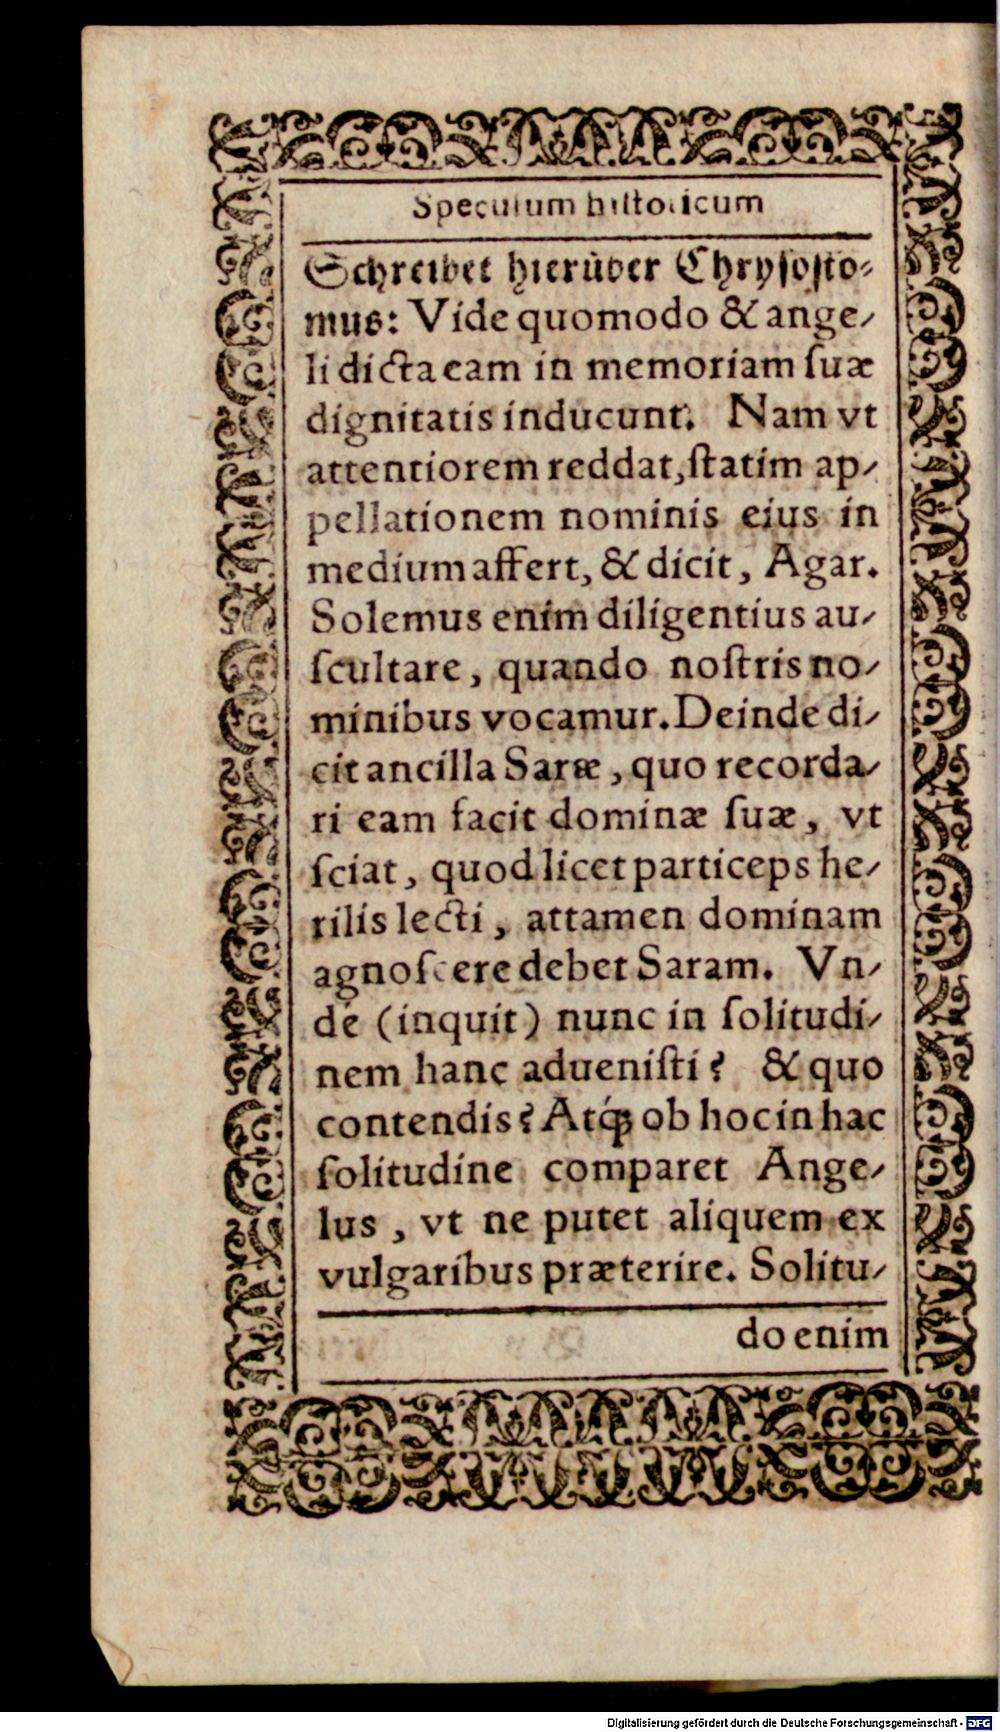 Speculum hiſtoricum
Schreibet hierüber Chryſoſto⸗
mus: Vide quomodo & ange⸗
li dicta eam in memoriam ſuæ
dignitatis inducunt. Nam vt
attentiorem reddat, ſtatim ap⸗
pellationem nominis eius in
medium affert, & dicit, Agar.
Solemus enim diligentius au⸗
ſcultare, quando noſtris no⸗
minibus vocamur. Deinde di⸗
cit ancilla Saræ, quo recorda⸗
ri eam facit dominæ ſuæ, vt
ſciat, quod licet particeps he⸗
rilis lecti, attamen dominam
agnoſcere debet Saram. Vn⸗
de (inquit) nunc in ſolitudi⸗
nem hanc adueniſti? & quo
contendis? Atq́; ob hoc in hac
ſolitudine comparet Ange⸗
lus, vt ne putet aliquem ex
vulgaribus præterire. Solitu⸗
do enim
Digitalisierung gefördert durch die Deutsche Forschungsgemeinschaft - DFG